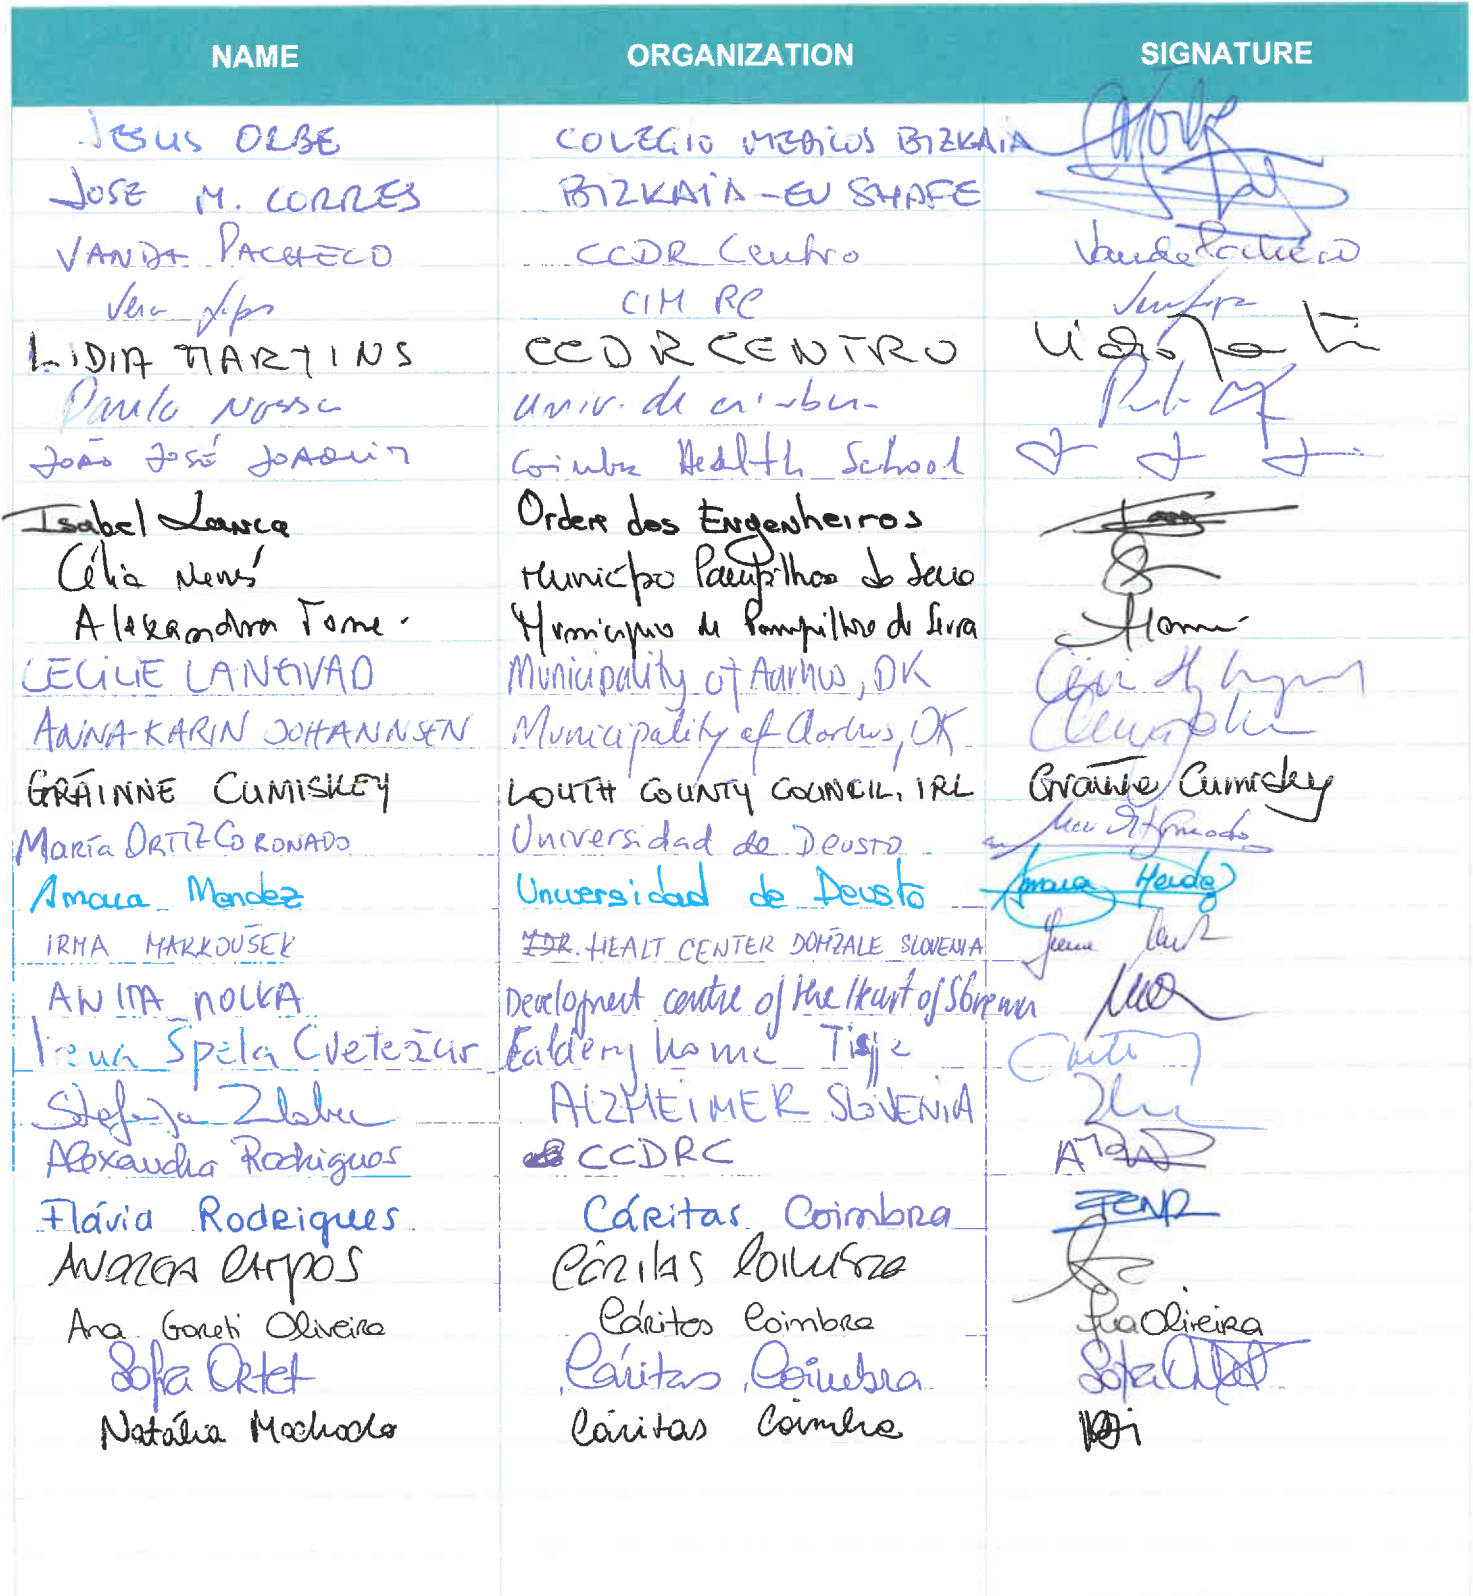 NAME ORGANIZATION SIGNATURE
JESUS ORBE COLEGIO MEDICOS BIZKAIA
JOSE M. CORRES BIZKAIA-EU SHAFE
VANDA PACHECO CCDR Centro Vanda Pacheco
Vera CIM RC
LIDIA MARTINS CCDRCENTRO
Paulo Nossa Univ. de
JOÃO JOSÉ JOAQUIM Coimbra Health School
Isabel Lança Ordem dos Engenheiros
Célia Município Pampilhosa da Serra
Alexandra Tomé Município de Pampilhosa da Serra
CECILIE LANGVAD Municipality of Aarhus, DK
ANNA-KARIN JOHANNSEN Municipality of Aarhus, DK
GRÁINNE CUMISKEY LOUTH COUNTY COUNCIL, IRL Gráinne Cumiskey
María ORTIZ CORONADO Universidad de Deusto
Amaia Mendez Universidad de Deusto Amaia Mendez
IRMA MARKOUŠEK HEALT CENTER DOMŽALE SLOVENIA
ANITA MOLKA Development centre of the Heart of Slovenia
Irena Špela Cvetežar Ealdery home Tisje
Štefanija Zlobec ALZHEIMER SLOVENIA
Alexandra Rodrigues CCDRC
Flávia Rodrigues Cáritas Coimbra
ANDREA CAMPOS Cáritas Coimbra
Ana Goreti Oliveira Cáritas Coimbra Ana Oliveira
Sofia Ortet Cáritas Coimbra Sofia Ortet
Natália Machado Cáritas Coimbra